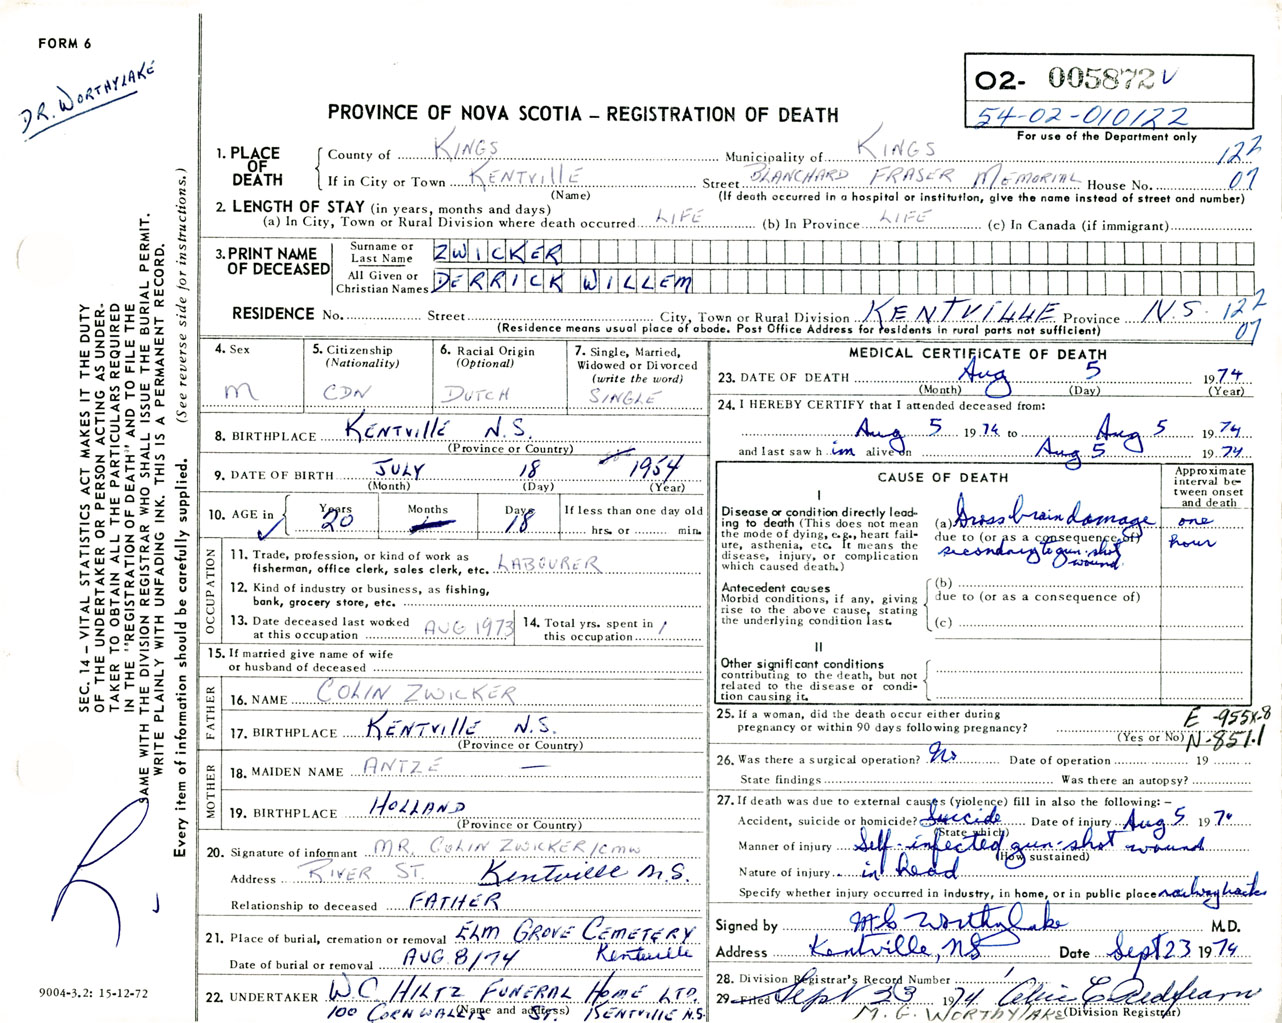 FORM 6
DR. WORTHYLAKE
02- 005872 V
54-02-010122
For use of the Department only
PROVINCE OF NOVA SCOTIA – REGISTRATION OF DEATH
1. PLACE OF DEATH
County of KINGS Municipality of KINGS 122
If in City or Town KENTVILLE Street BLANCHARD FRASER MEMORIAL House No. 07
(Name) (If death occurred in a hospital or institution, give the name instead of street and number)
2. LENGTH OF STAY (in years, months and days)
(a) In City, Town or Rural Division where death occurred LIFE (b) In Province LIFE (c) In Canada (if immigrant)
3. PRINT NAME OF DECEASED
Surname or Last Name ZWICKER
All Given or Christian Names DERRICK WILLEM
RESIDENCE No. Street City, Town or Rural Division KENTVILLE Province N.S. 122
(Residence means usual place of abode. Post Office Address for residents in rural parts not sufficient) 07
4. Sex M
5. Citizenship (Nationality) CDN
6. Racial Origin (Optional) DUTCH
7. Single, Married, Widowed or Divorced (write the word) SINGLE
8. BIRTHPLACE KENTVILLE N.S.
(Province or Country)
9. DATE OF BIRTH JULY 18 1954
(Month) (Day) (Year)
10. AGE in Years 20 Months Days 18 If less than one day old
hrs. or min.
OCCUPATION
11. Trade, profession, or kind of work as
fisherman, office clerk, sales clerk, etc. LABOURER
12. Kind of industry or business, as fishing,
bank, grocery store, etc.
13. Date deceased last worked
at this occupation AUG 1973
14. Total yrs. spent in
this occupation 1
15. If married give name of wife
or husband of deceased
FATHER
16. NAME COLIN ZWICKER
17. BIRTHPLACE KENTVILLE N.S.
(Province or Country)
MOTHER
18. MAIDEN NAME ANTZE —
19. BIRTHPLACE HOLLAND
(Province or Country)
20. Signature of informant MR. COLIN ZWICKER/CMW
Address RIVER ST. Kentville N.S.
Relationship to deceased FATHER
21. Place of burial, cremation or removal ELM GROVE CEMETERY
Date of burial or removal AUG 8/74 Kentville
22. UNDERTAKER W.C. HILTZ FUNERAL HOME LTD.
(Name and address)
100 CORNWALLIS ST. KENTVILLE N.S.
MEDICAL CERTIFICATE OF DEATH
23. DATE OF DEATH Aug 5 1974
(Month) (Day) (Year)
24. I HEREBY CERTIFY that I attended deceased from:
Aug 5 1974 to Aug 5 1974
and last saw him alive on Aug 5 1974
CAUSE OF DEATH
Approximate interval between onset and death
I
Disease or condition directly leading to death (This does not mean the mode of dying, e.g., heart failure, asthenia, etc. It means the disease, injury, or complication which caused death.)
(a) Gross brain damage one hour
due to (or as a consequence of)
secondary to gun-shot
wound
Antecedent causes
Morbid conditions, if any, giving rise to the above cause, stating the underlying condition last.
(b)
due to (or as a consequence of)
(c)
II
Other significant conditions
contributing to the death, but not related to the disease or condition causing it.
25. If a woman, did the death occur either during
pregnancy or within 90 days following pregnancy?
(Yes or No)
E-955X-8
N-851.1
26. Was there a surgical operation? No Date of operation 19
State findings Was there an autopsy?
27. If death was due to external causes (violence) fill in also the following: –
Accident, suicide or homicide? Suicide Date of injury Aug 5 1974
(State which)
Manner of injury Self-infected gun-shot wound
(How sustained)
Nature of injury in head
Specify whether injury occurred in industry, in home, or in public place railway tracks
Signed by M G Worthylake M.D.
Address Kentville, NS Date Sept 23 1974
28. Division Registrar's Record Number
29. Filed Sept 23 1974
(Division Registrar)
M. G. WORTHYLAKE
SEC. 14 – VITAL STATISTICS ACT MAKES IT THE DUTY
OF THE UNDERTAKER OR PERSON ACTING AS UNDER-
TAKER TO OBTAIN ALL THE PARTICULARS REQUIRED
IN THE "REGISTRATION OF DEATH" AND TO FILE THE
SAME WITH THE DIVISION REGISTRAR WHO SHALL ISSUE THE BURIAL PERMIT.
WRITE PLAINLY WITH UNFADING INK. THIS IS A PERMANENT RECORD.
Every item of information should be carefully supplied. (See reverse side for instructions.)
9004-3.2: 15-12-72